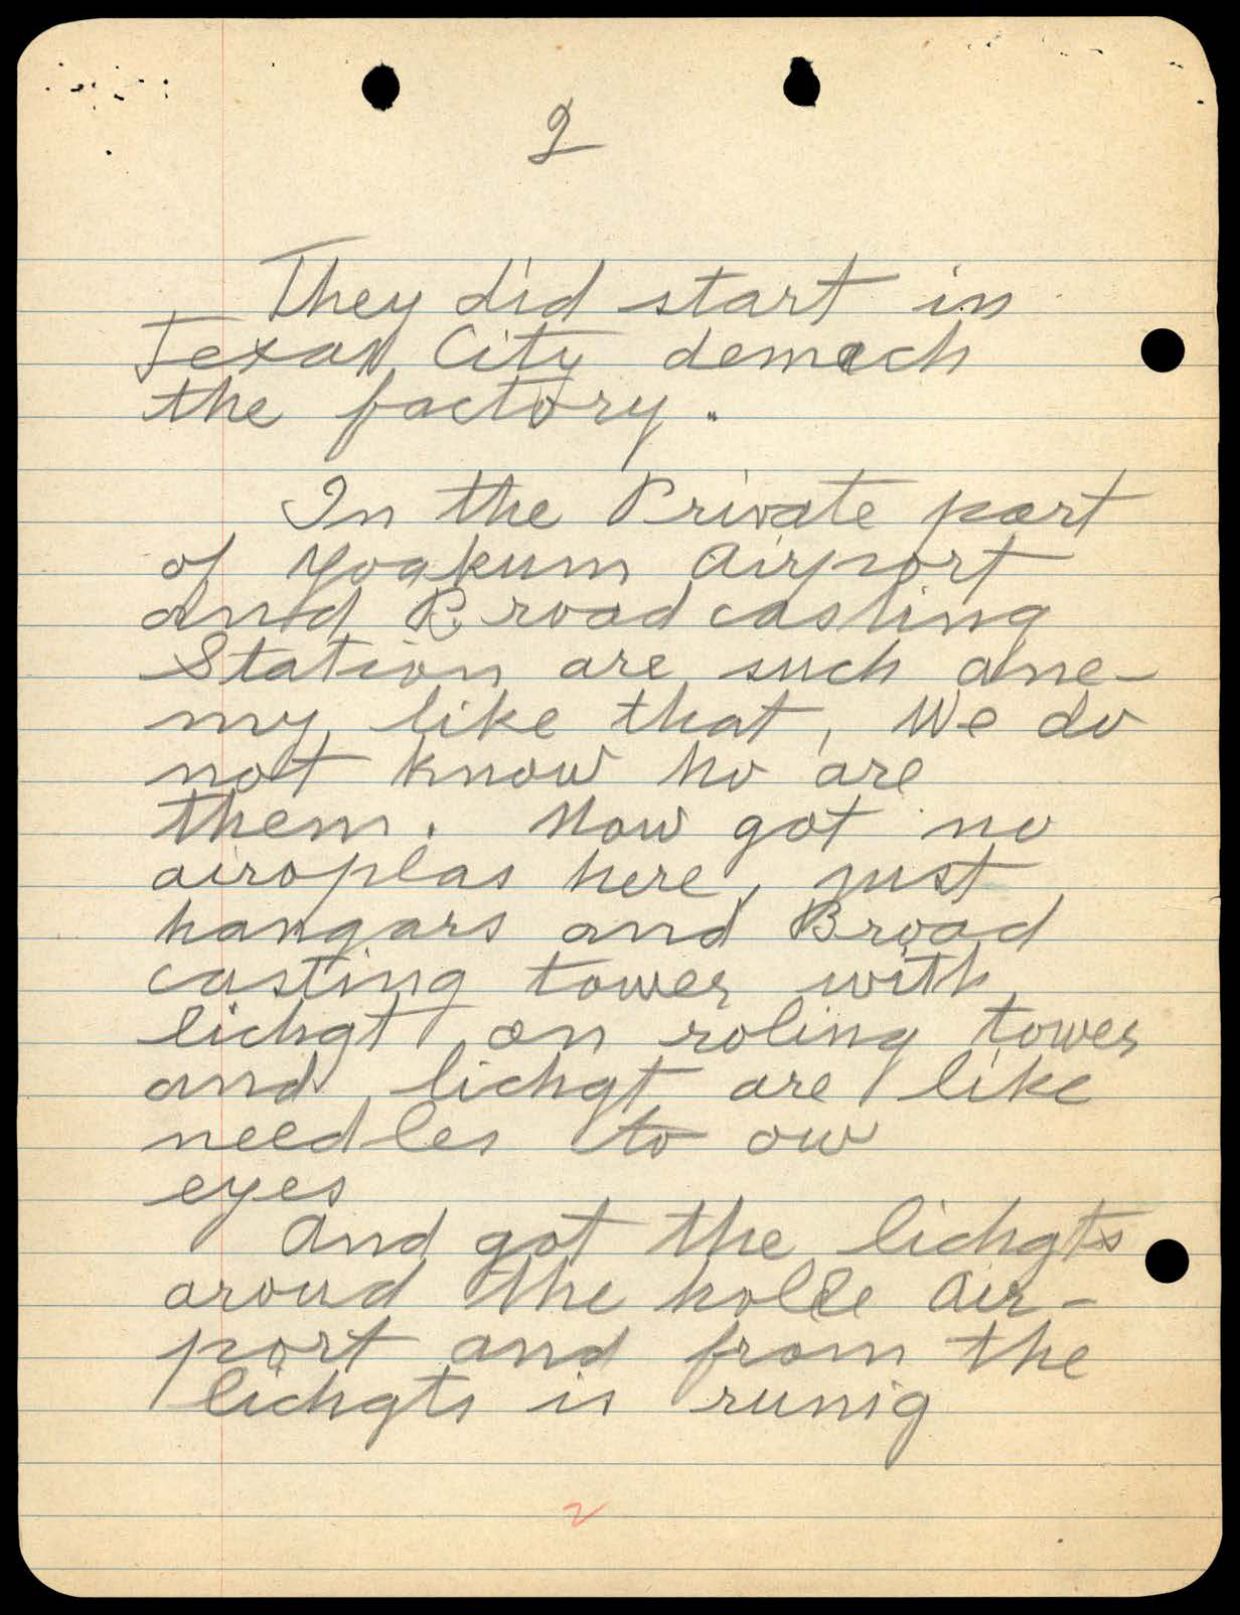 2
They did start in
Texas City demach
the factory.
In the Private part
of Yoakum Airport
and Broadcasting
Station are such ane-
my like that, We do
not know ho are
them. Now got no
airoplas here, just
hangars and Broad
casting tower with
lichgt on roling tower
and lichgt are like
needles to our
eyes
And got the lichgts
around the holle Air-
port and from the
lichgts is runig
2